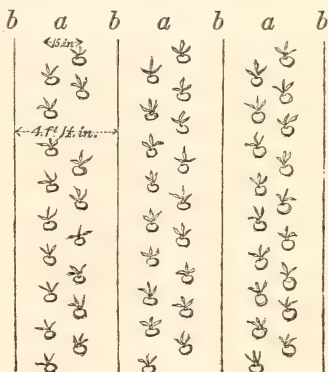 b a b a b a b
15 in
4. ft 1½ in.